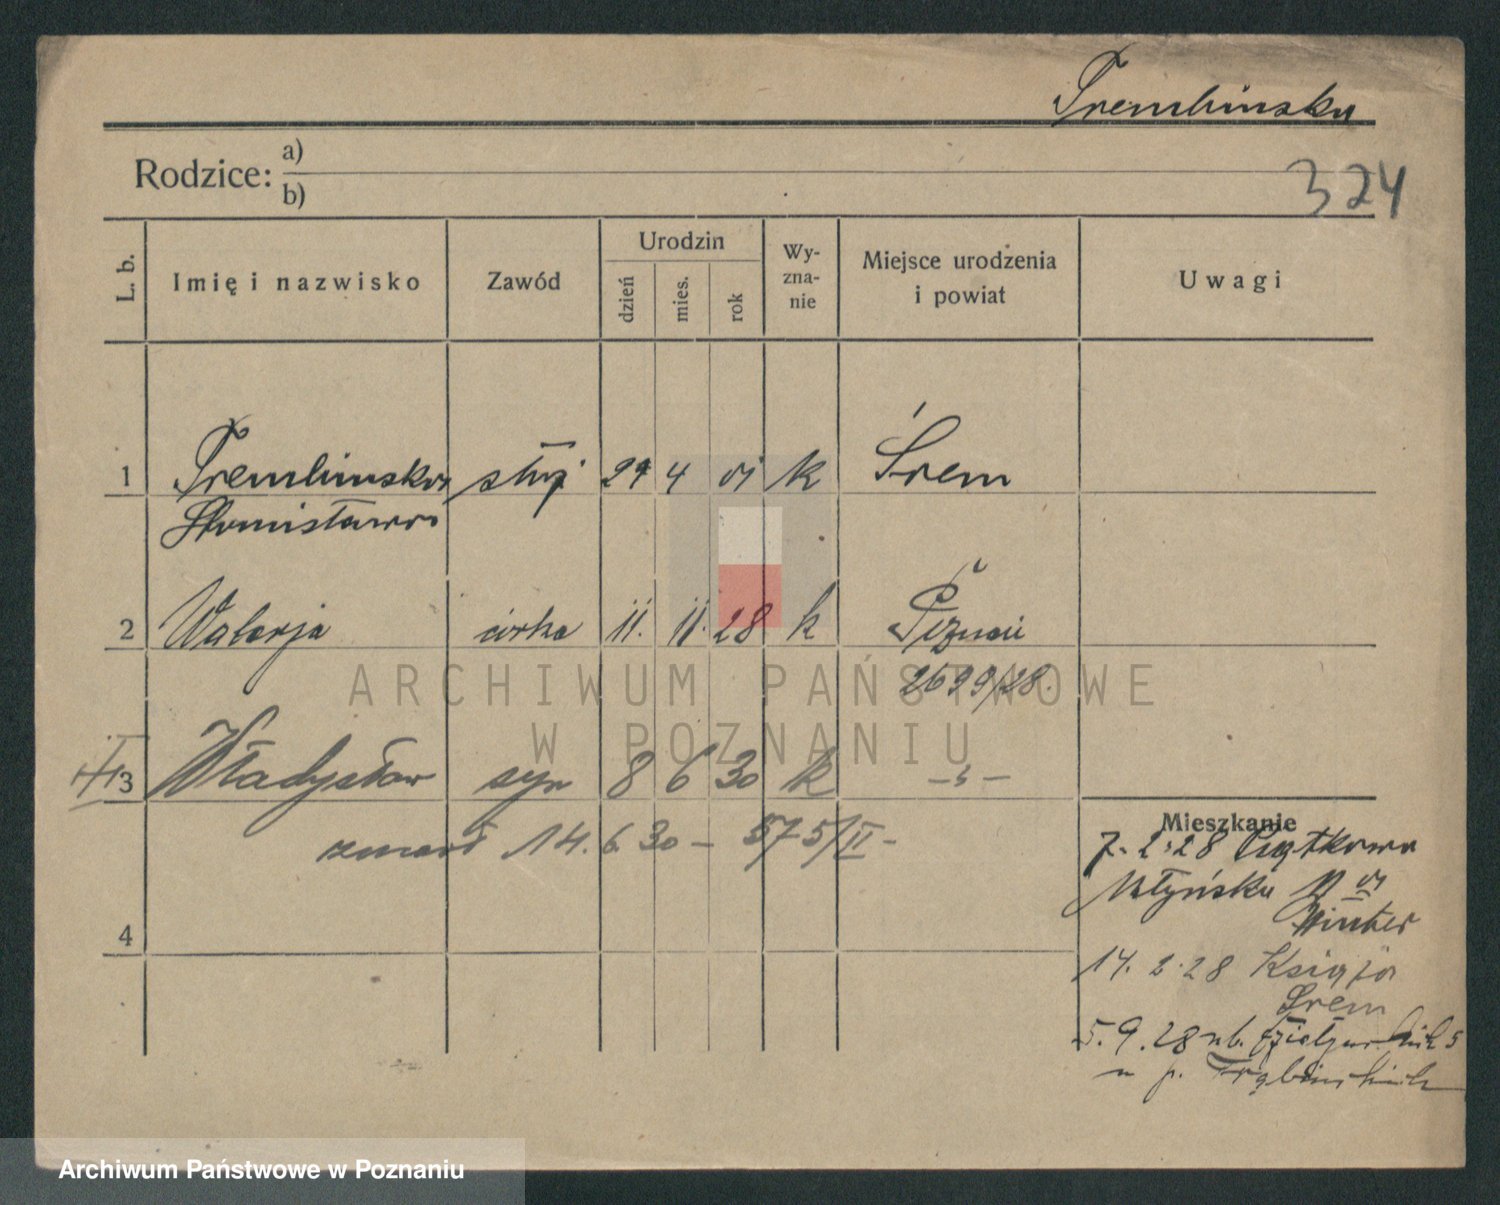 Tremblinska
Rodzice: a)
b)
324
L. b. Imię i nazwisko Zawód Urodzin dzień mies. rok Wy-zna-nie Miejsce urodzenia i powiat Uwagi
1 Tremblinska służ 29 4 01 k Śrem
Stanisława
2 Walerja córka 11. 11. 28 k Poznań
2699/28.
3 Władysław syn 8 6 30 k -„-
zmarł 14. 6 30 - 575/II -
Mieszkanie
7. 2. 28 Piątkowo
Młyńska
Winter
4
14. 2. 28 Książa
Śrem
5. 9. 28
u p.
ARCHIWUM PAŃSTWOWE
W POZNANIU
Archiwum Państwowe w Poznaniu